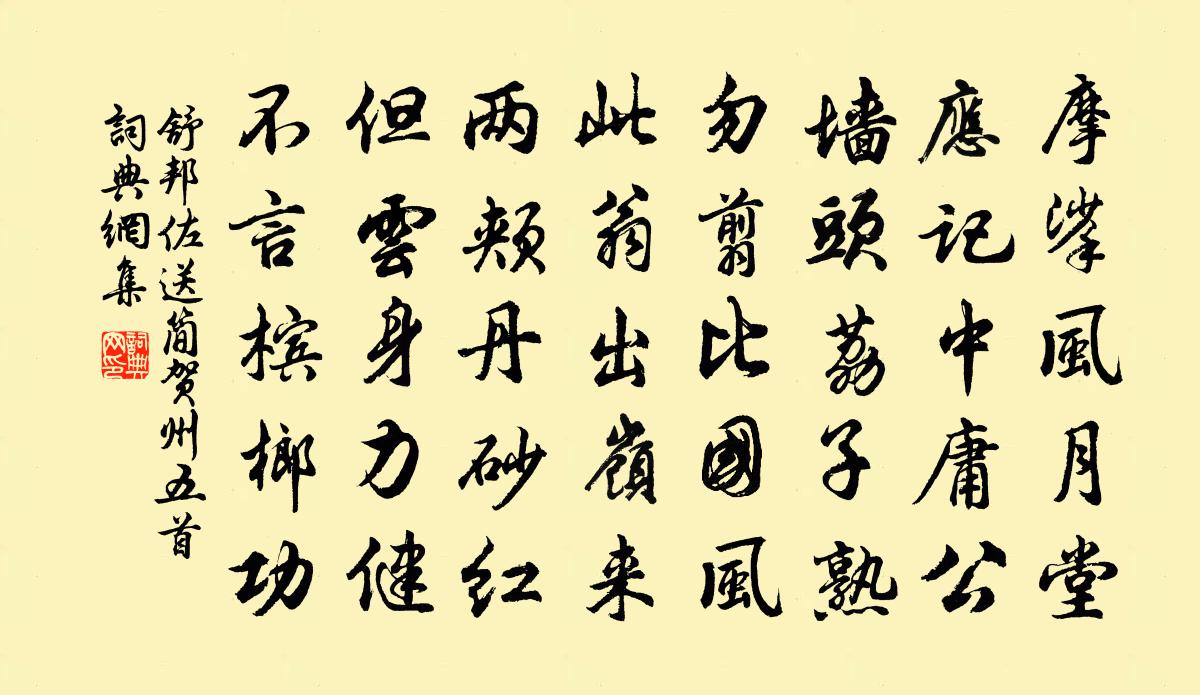 摩挲風月堂
應記中庸公
墙頭荔子熟
勿翦比國風
此翁出嶺来
两頰丹砂红
但雲身力健
不言槟榔功
舒邦佐送简贺州五首
詞典網集
詞典
网印